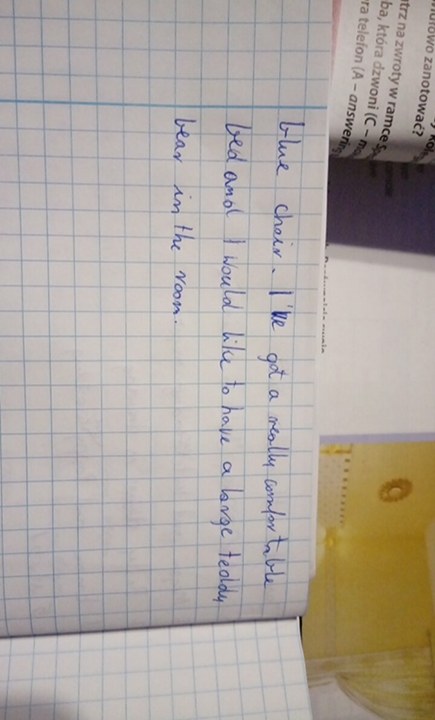 zanotować?
trz na zwroty w ramce
ba, która dzwoni (C –
ra telefon (A – answering
blue chair. I've got a really comfortable
bed and I would like to have a large teddy
bear in the room.